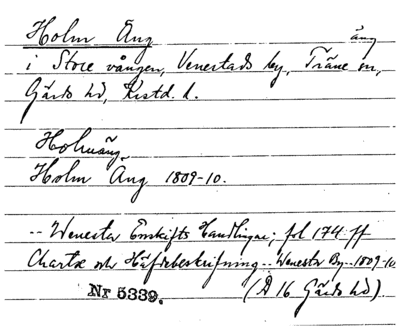 Holm Äng äng
i Store vången, Venestads by, Träne sn,
Gärds hd, Kristd. l.
Holmäng
Holm Äng 1809-10.
-- Wenesta Enskifts Handlingar; fol 174 ff
Charta och Häfdebeskrifning -- Wenesta By -- 1809-10
Nr 5339. (D 16 Gärds hd).